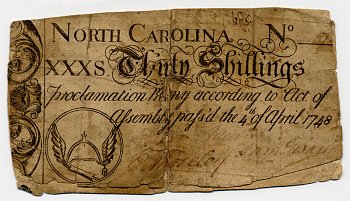 NORTH CAROLINA. No
XXXS Thirty Shillings
Proclamation Money according to Act of
Assembly pass'd the 4 of April 1748